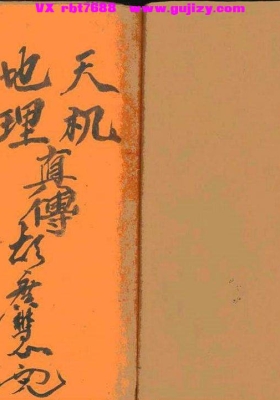 VX rbt7688 www.gujizy.com
天机
地理
真傳